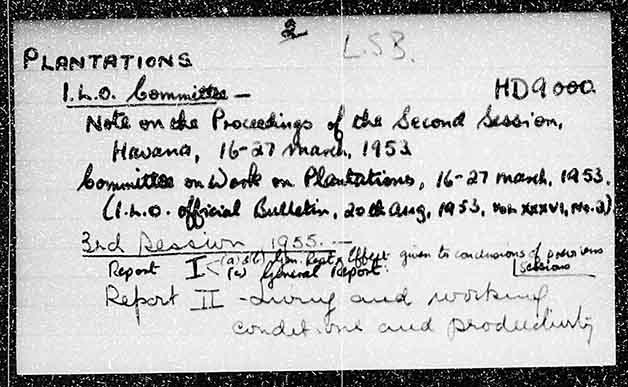 2
L.S.B.
PLANTATIONS
I.L.O. Committee —
HD9000.
Note on the Proceedings of the Second Session,
Havana, 16-27 march, 1953
Committee on Work on Plantations, 16-27 march, 1953.
(I.L.O. official Bulletin, 20th Aug, 1953, Vol XXXVI, No. 2)
3rd Session 1955. —
Report I < (a) & (b) Gen. Rept. & Effect given to conclusions of previous sessions
General Report.
Report II - Living and working
conditions and productivity